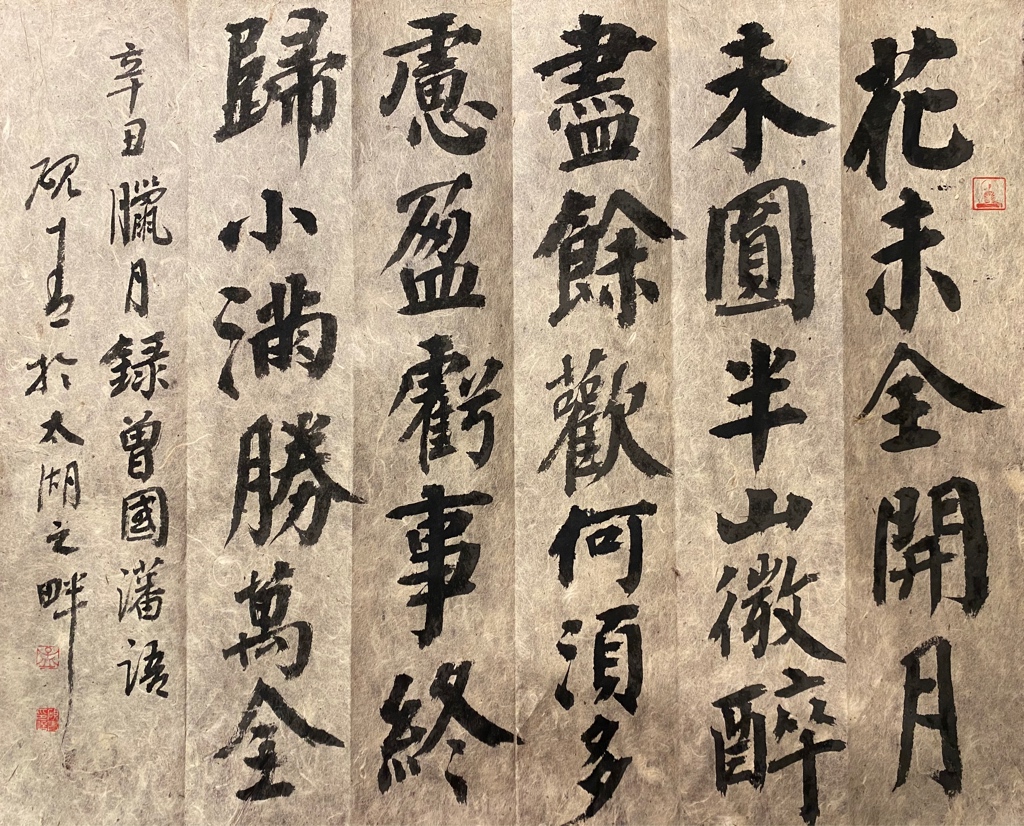 花未全開月
未圓半山微醉
盡餘歡何須多
慮盈虧事終
歸小滿勝萬全
辛丑臘月録曾國藩語
硯青於太湖之畔